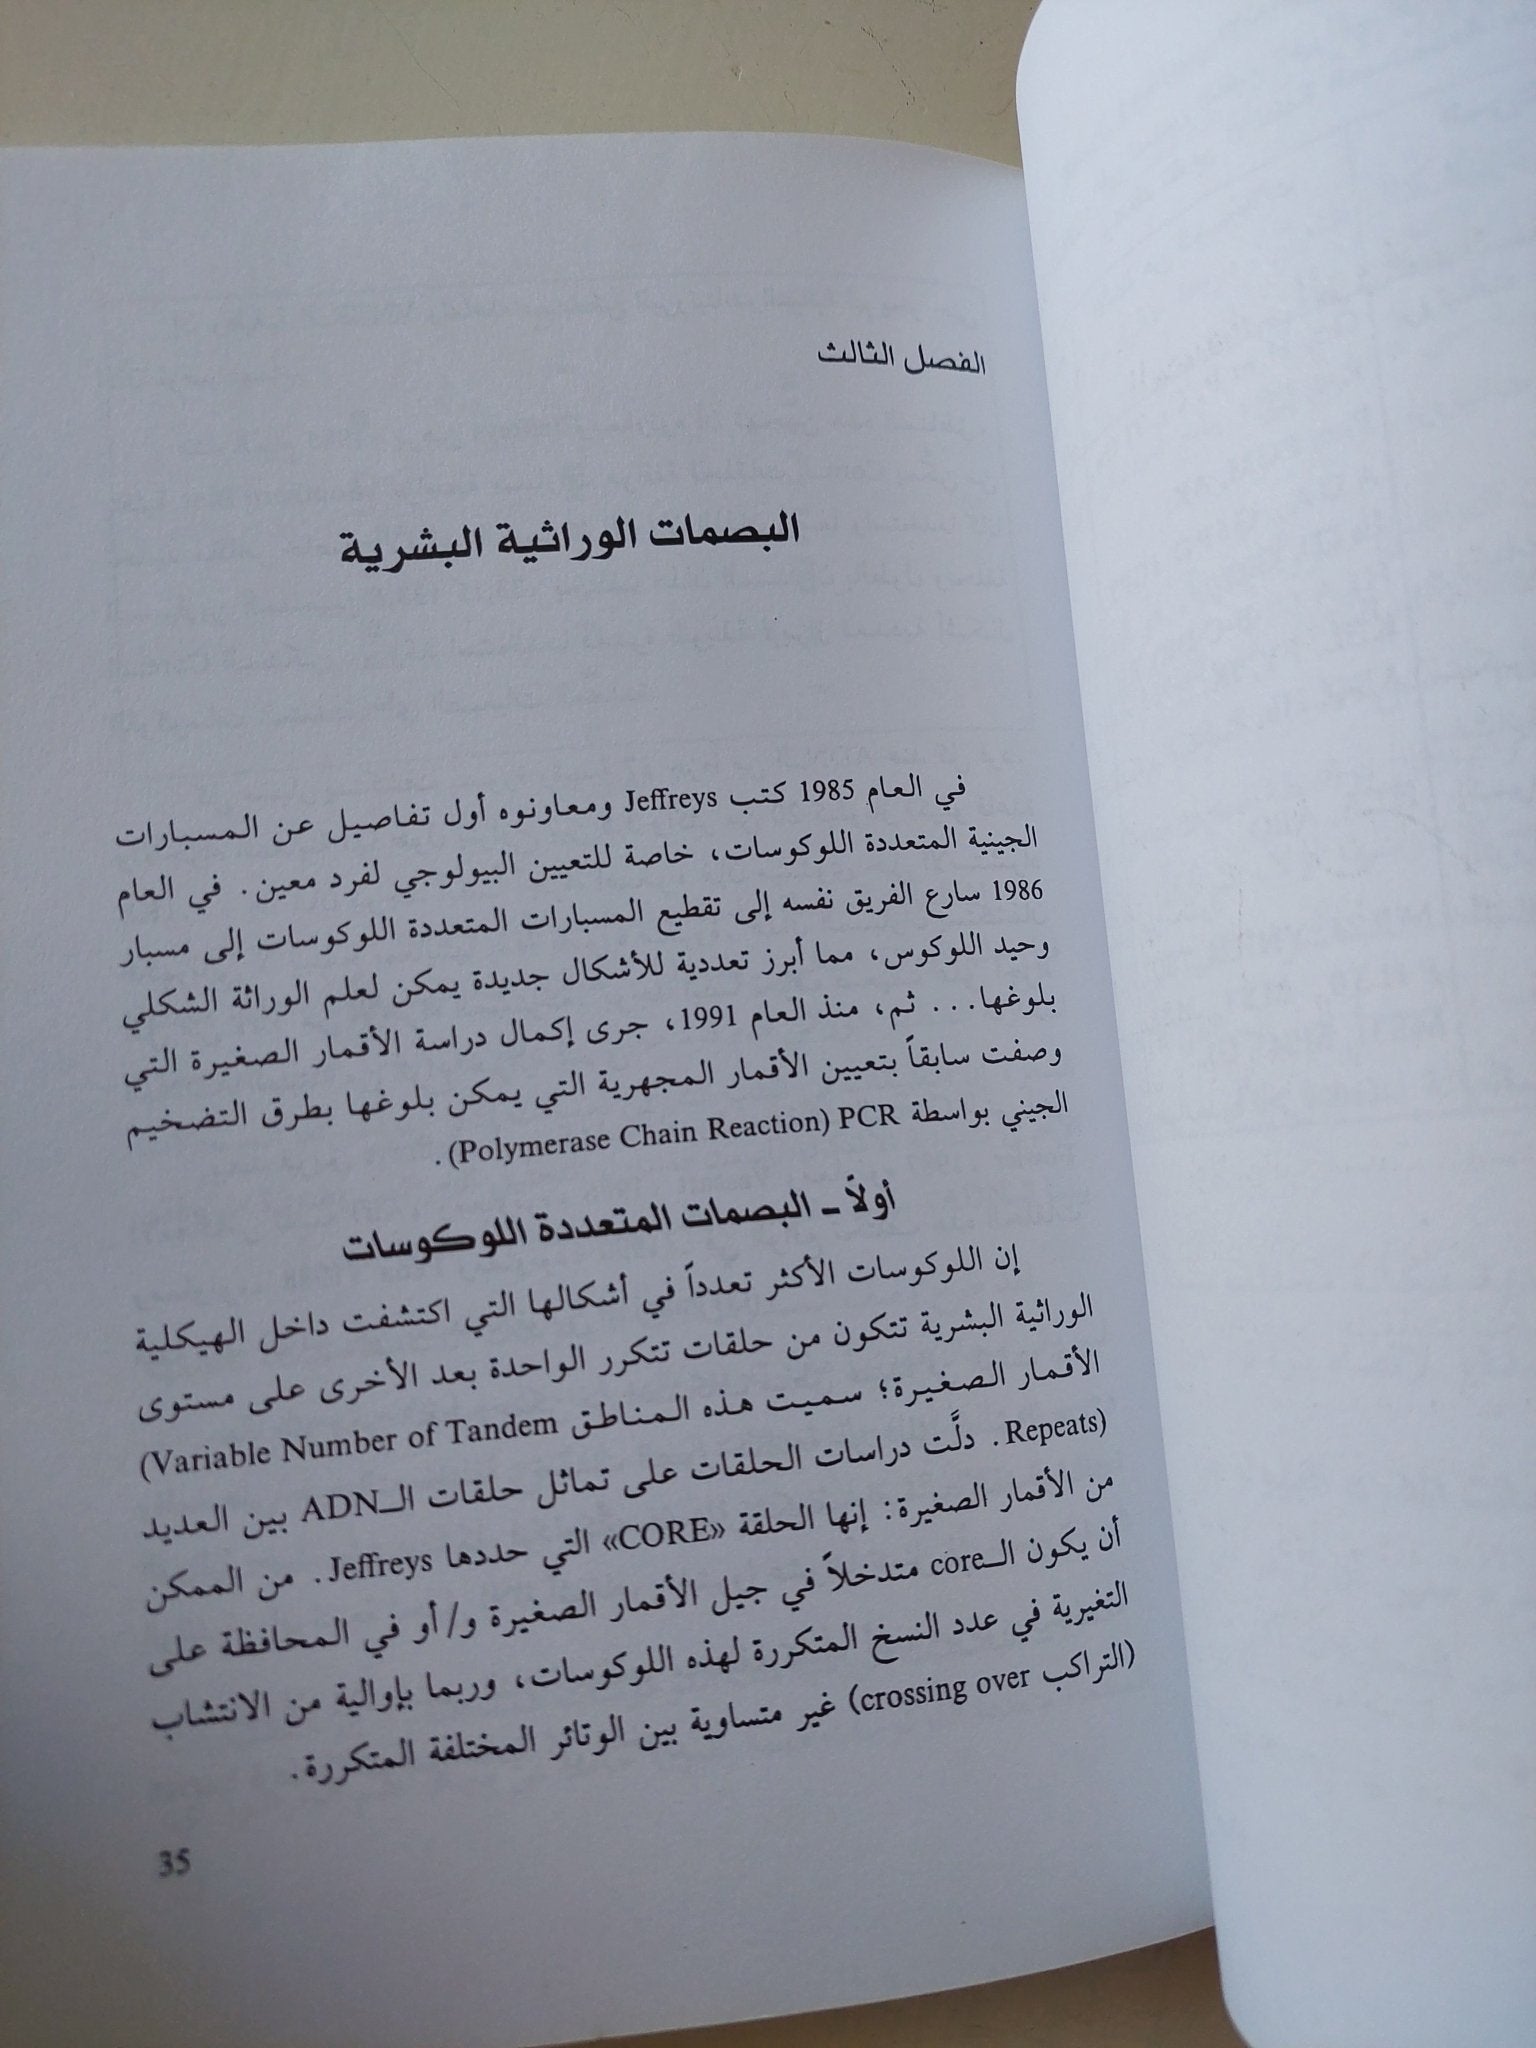 الفصل الثالث
البصمات الوراثية البشرية
في العام 1985 كتب Jeffreys ومعاونوه أول تفاصيل عن المسبارات
الجينية المتعددة اللوكوسات، خاصة للتعيين البيولوجي لفرد معين. في العام
1986 سارع الفريق نفسه إلى تقطيع المسبارات المتعددة اللوكوسات إلى مسبار
وحيد اللوكوس، مما أبرز تعددية للأشكال جديدة يمكن لعلم الوراثة الشكلي
بلوغها... ثم، منذ العام 1991، جرى إكمال دراسة الأقمار الصغيرة التي
وصفت سابقاً بتعيين الأقمار المجهرية التي يمكن بلوغها بطرق التضخيم
الجيني بواسطة PCR (Polymerase Chain Reaction).
أولاً ـ البصمات المتعددة اللوكوسات
إن اللوكوسات الأكثر تعدداً في أشكالها التي اكتشفت داخل الهيكلية
الوراثية البشرية تتكون من حلقات تتكرر الواحدة بعد الأخرى على مستوى
الأقمار الصغيرة؛ سميت هذه المناطق (Variable Number of Tandem
Repeats). دلَّت دراسات الحلقات على تماثل حلقات الـADN بين العديد
من الأقمار الصغيرة: إنها الحلقة «CORE» التي حددها Jeffreys. من الممكن
أن يكون الـcore متدخلاً في جيل الأقمار الصغيرة و/أو في المحافظة على
التغيرية في عدد النسخ المتكررة لهذه اللوكوسات، وربما بإوالية من الانتشاب
(التراكب crossing over) غير متساوية بين الوتائر المختلفة المتكررة.
35